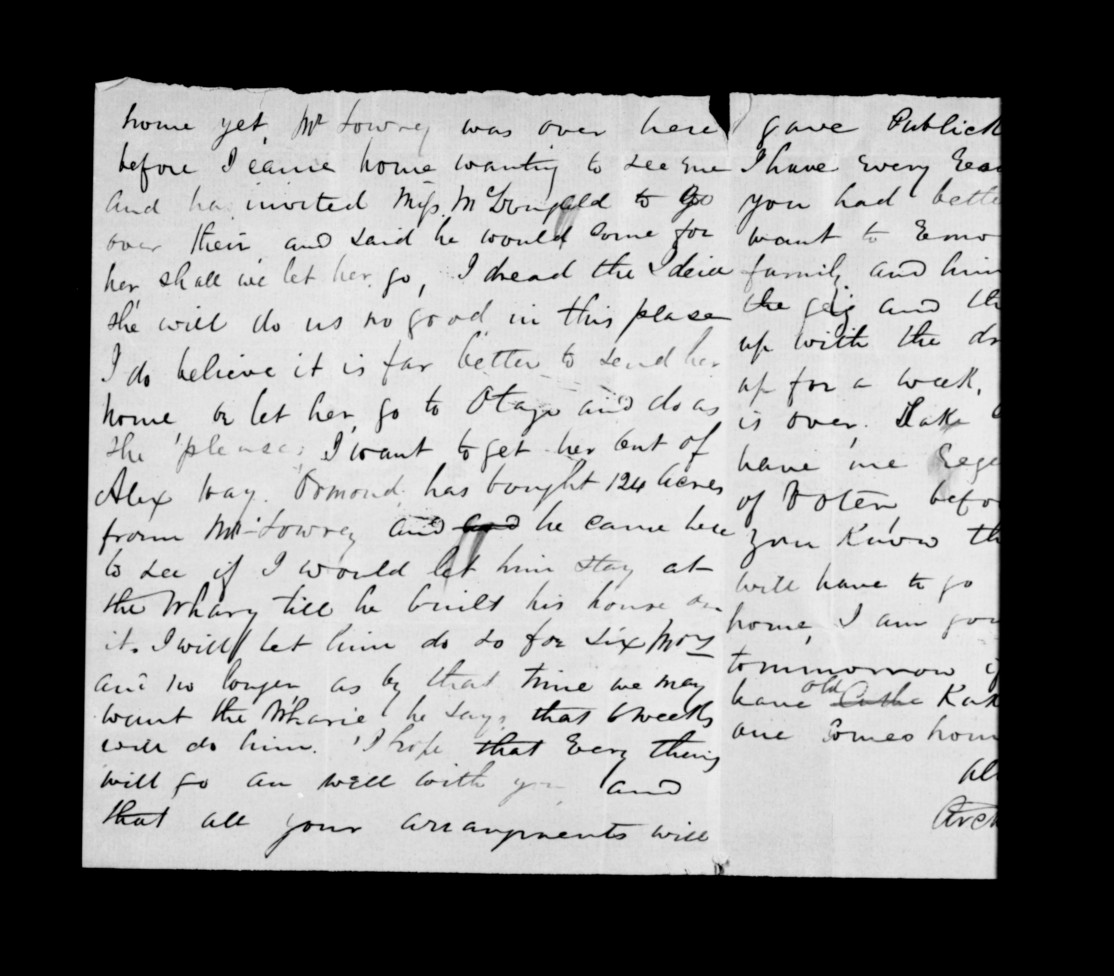 home yet, Mr Lowrey was over here
before I came home wanting to see me
and has invited Miss McDougald to go
over their, and said he would Come for
her shall we let her go, I dread the Idea
she will do us no good in this place
I do believe it is far better to send her
home, or let her go to Otago and do as
she please; I want to get her out of
Alex way. Ormond has bought 124 acres
from Mr Lowrey and and he came here
to see if I would let him stay at
the Whary till he built his house on
it. I will let him do so for six Mos
and no longer, as by that time we may
want the Wharie he says that 6 weeks
will do him. I hope that Every thing
will go on well with you and
that all your arrangments will
gave Publick
I have Every
you had bette
want to
family and him
the gig and th
up with the
up for a week,
is over. Take
have me
of Voten befo
you Know th
will have to go
home, I am goi
tommorrow
have old Kak
one Comes hom